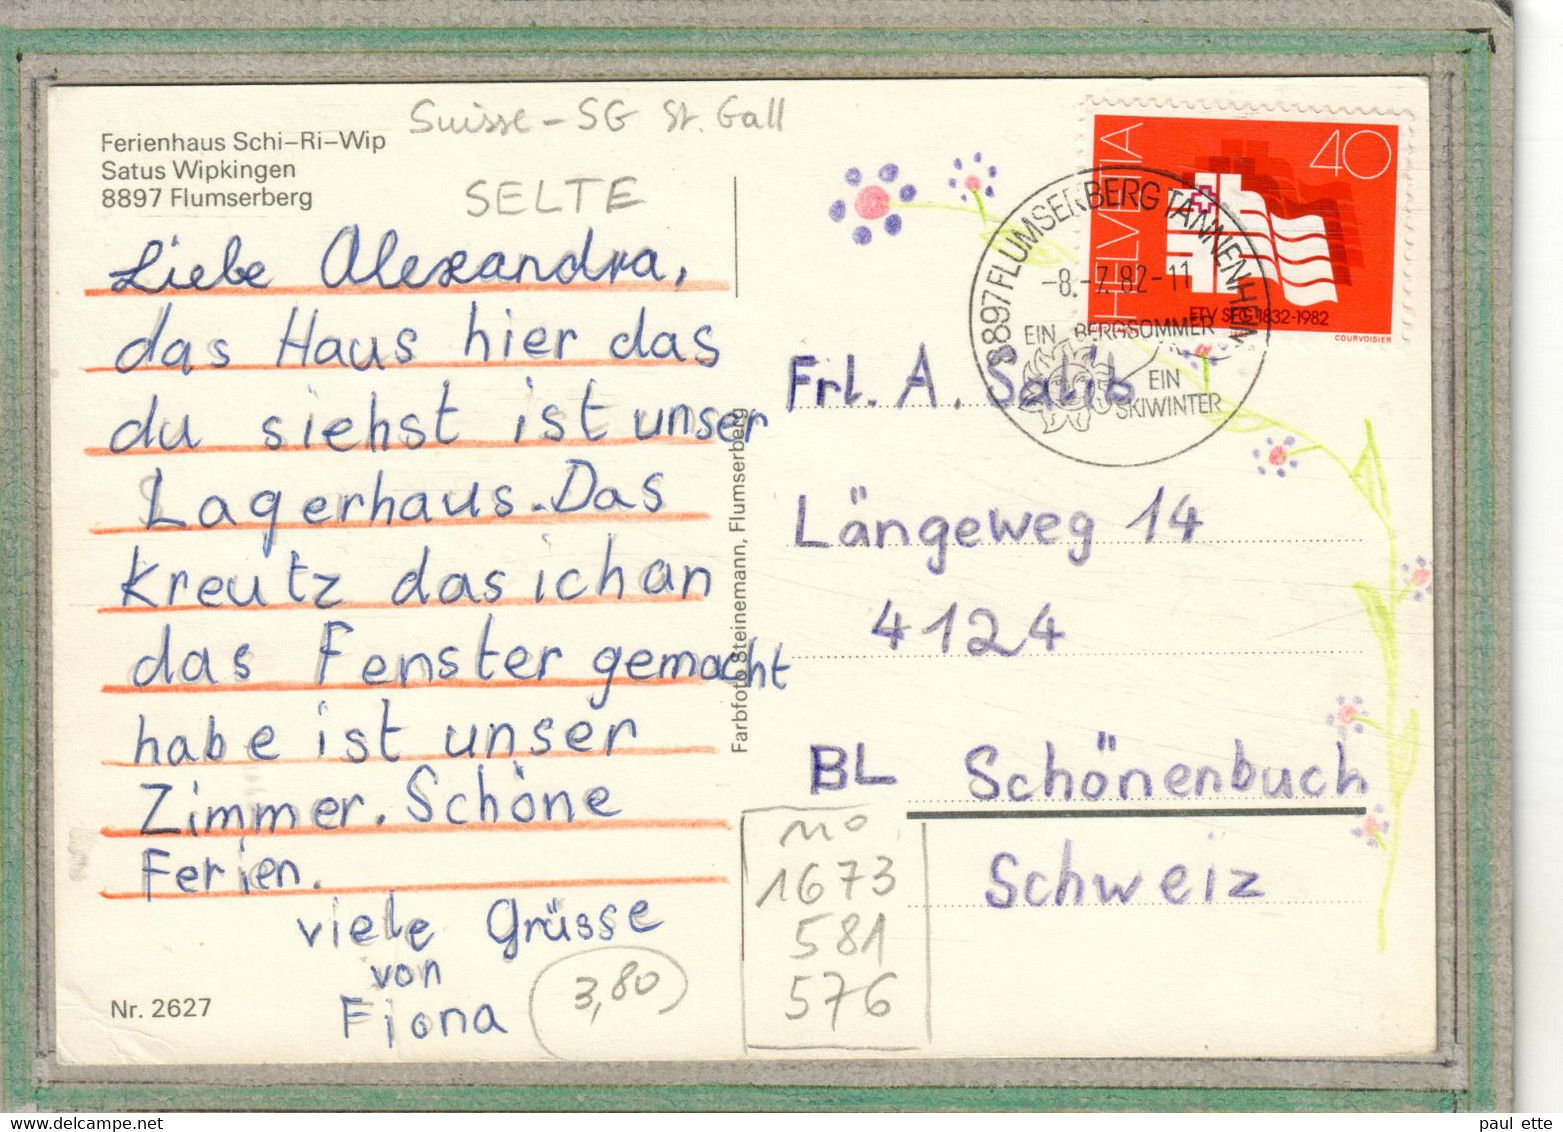 Suisse - SG St. Gall
Ferienhaus Schi-Ri-Wip
Satus Wipkingen
8897 Flumserberg
SELTE
Liebe Alexandra,
das Haus hier das
du siehst ist unser
Lagerhaus. Das
Kreutz das ich an
das Fenster gemacht
habe ist unser
Zimmer. Schöne
Ferien.
viele Grüsse
von
Fiona
3,80
Nr. 2627
Farbfoto Steinemann, Flumserberg
HELVETIA
40
ETV SFG 1832-1982
COURVOISIER
8897 FLUMSERBERG TANNENHEIM
-8.-7.82-11
EIN BERGSOMMER
EIN
SKIWINTER
Frl. A. Salib
Längeweg 14
4124
BL Schönenbuch
Schweiz
no
1673
581
576
paul_ette